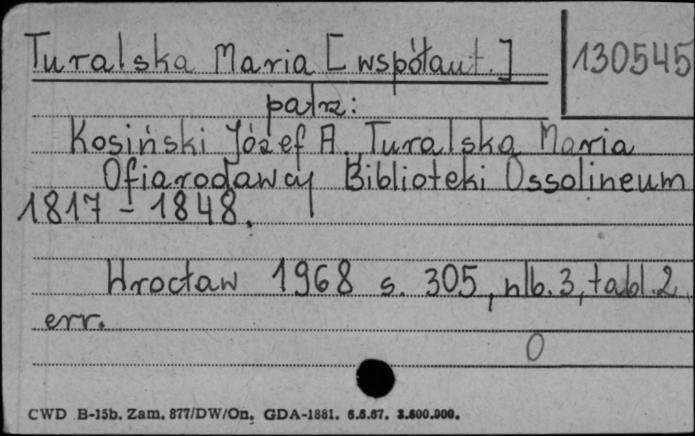 Turalska Maria [współaut.] 130545
patrz:
Kosiński Józef A., Turalska Maria
Ofiarodawcy Biblioteki Ossolineum
1817 - 1848.
Wrocław 1968 s. 305, nlb. 3, tabl. 2
err.
0
CWD B-15b. Zam. 877/DW/On. GDA-1881. 6.6.67. 3.600.000.